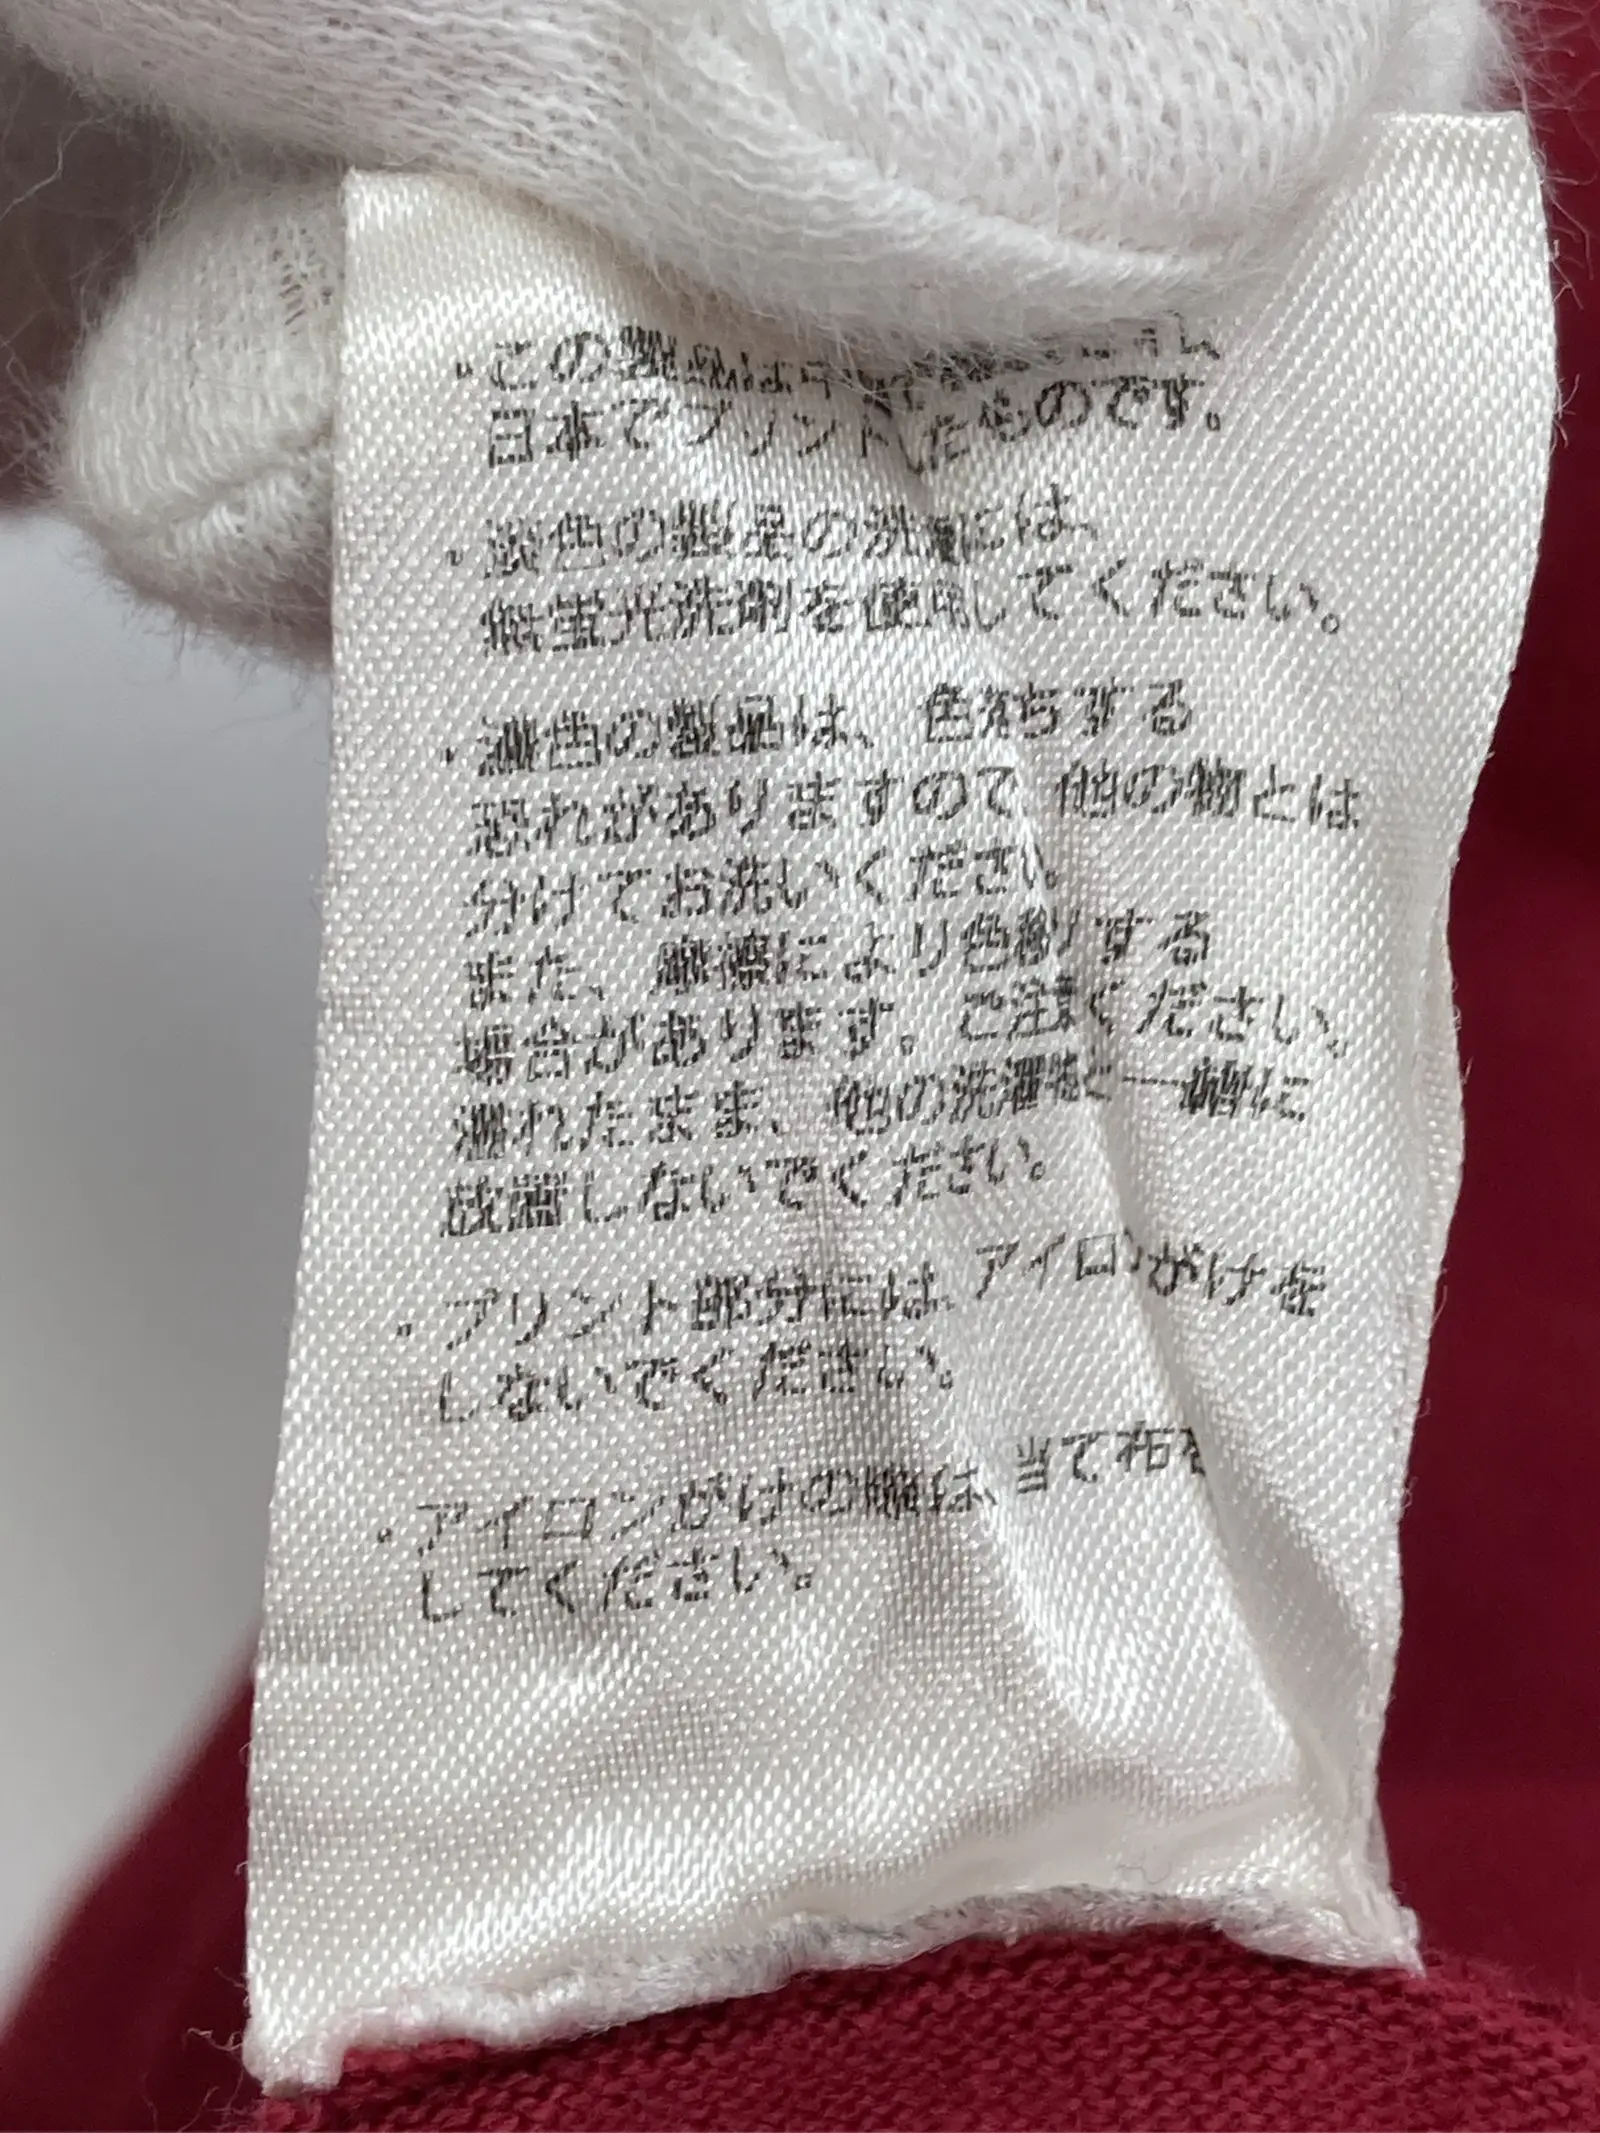 ・この製品は
日本でプリントしたものです。
・淡色の製品の洗濯には、
無蛍光洗剤を使用してください。
・濃色の製品は、色落ちする
恐れがありますので他の物とは
分けてお洗いください。
また、摩擦により色移りする
場合があります。ご注意ください。
濡れたまま、他の洗濯物と一緒に
放置しないでください。
・プリント部分には、アイロンがけを
しないでください。
・アイロンがけの際は、当て布を
してください。